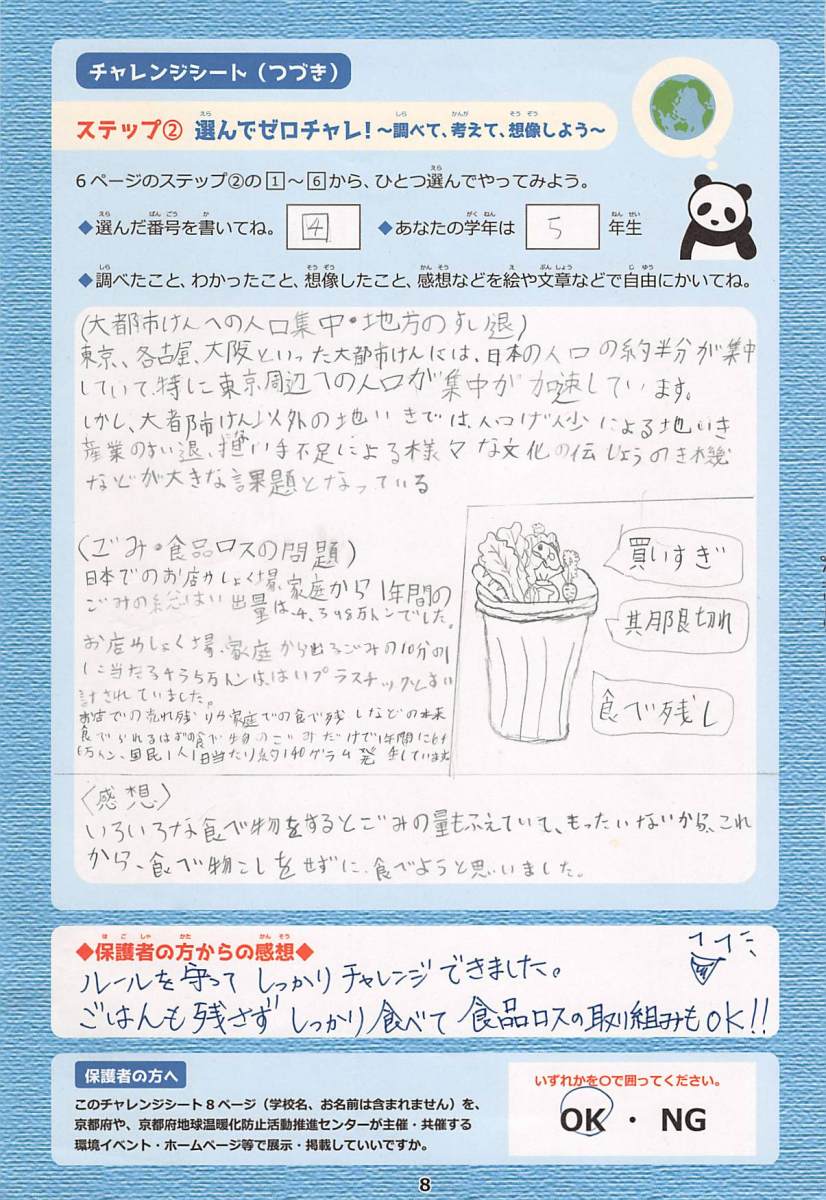 チャレンジシート（つづき）
ステップ② 選んでゼロチャレ！～調べて、考えて、想像しよう～
6ページのステップ②の1～6から、ひとつ選んでやってみよう。
◆選んだ番号を書いてね。 4 ◆あなたの学年は 5 年生
◆調べたこと、わかったこと、想像したこと、感想などを絵や文章などで自由にかいてね。
(大都市けんへの人口集中・地方のすい退)
東京、名古屋、大阪といった大都市けんには、日本の人口の約半分が集中
していて、特に東京周辺への人口が集中が加速しています。
しかし、大都市けん以外の地いきでは、人口げん少による地いき
産業のすい退、担い手不足による様々な文化の伝しょうのき機
などが大きな課題となっている
(ごみ・食品ロスの問題)
日本でのお店やしょく場、家庭から1年間の
ごみの総はい出量は、4,398万トンでした。
お店やしょく場、家庭から出るごみの10分の1
に当たる455万トンは、はいプラスチックとすい
計されていました。
お店での売れ残りや家庭での食べ残しなどの本来
食べられるはずの食べ物のごみだけで1年間に
万トン、国民1人1日当たり約140グラム発生しています
買いすぎ
期限切れ
食べ残し
〈感想〉
いろいろな食べ物をするとごみの量もふえていて、もったいないから、これ
から、食べ物こしをせずに、食べようと思いました。
◆保護者の方からの感想◆
ルールを守ってしっかりチャレンジできました。
ごはんも残さずしっかり食べて食品ロスの取り組みもOK!!
保護者の方へ
このチャレンジシート8ページ（学校名、お名前は含まれません）を、
京都府や、京都府地球温暖化防止活動推進センターが主催・共催する
環境イベント・ホームページ等で展示・掲載していいですか。
いずれかを○で囲ってください。
OK ・ NG
8